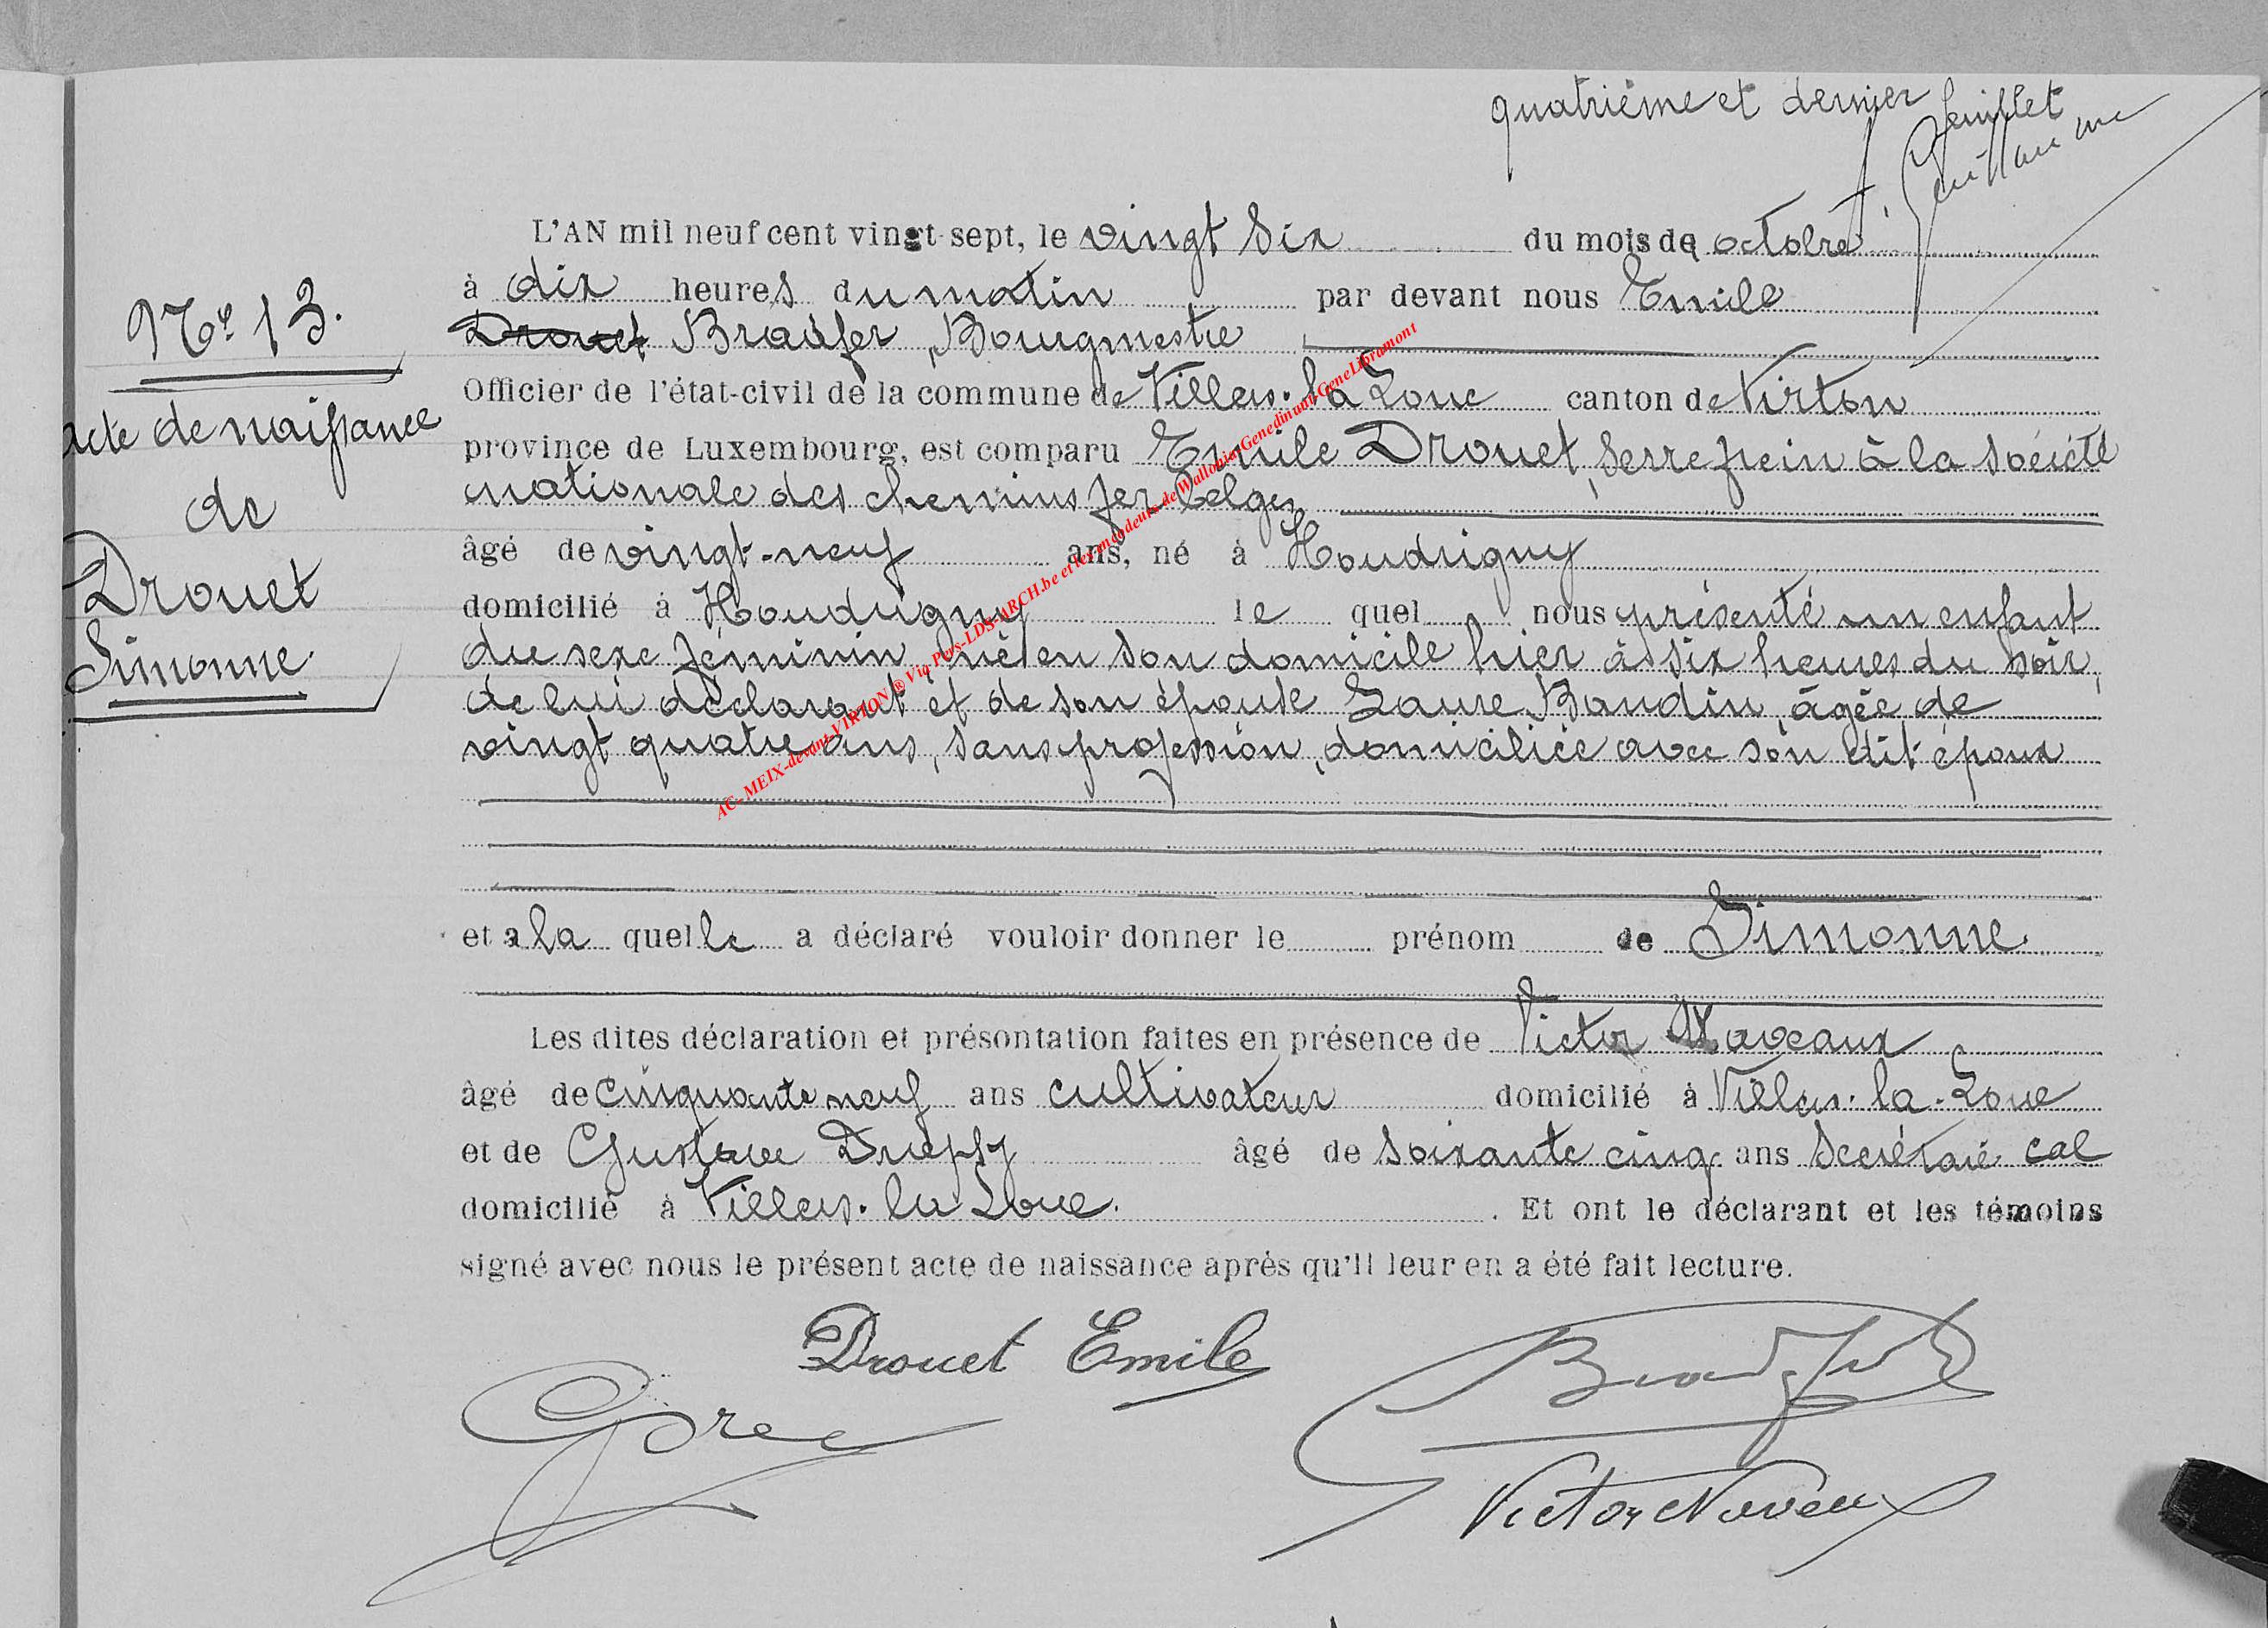 quatrième et dernier feuillet
Guillaume
L'AN mil neuf cent vingt-sept, le vingt six du mois de octobre
à dix heures du matin par devant nous Emile
Drouet Braùfer, Bourgmestre
N° 13.
Officier de l'état-civil de la commune de Villers-la-Loue canton de Virton
acte de naissance
province de Luxembourg, est comparu Emile Drouet, serre frein à la société
nationale des chemins fer belges
de
âgé de vingt-neuf ans, né à Houdrigny
Drouet
domicilié à Houdrigny le quel nous présenté un enfant
Simonne
du sexe féminin, né en son domicile hier à six heures du soir,
de lui déclarant et de son épouse Laure Baudin, âgée de
vingt quatre ans, sans profession, domiciliée avec son dit époux
et à la quelle a déclaré vouloir donner le prénom de Simonne.
Les dites déclaration et présontation faites en présence de Victor Naveaux
âgé de cinquante neuf ans cultivateur domicilié à Villers-la-Loue
et de Gustave âgé de soixante cinq ans secrétaire cal
domicilié à Villers-la Loue. Et ont le déclarant et les témoins
signé avec nous le présent acte de naissance après qu'il leur en a été fait lecture.
Drouet Emile
Victor Naveaux
AC- MEIX-devant-VIRTON ® Via Pays-LDS-ARCH.be et les encodeurs de Wallonia-Genedinant-GeneLibramont